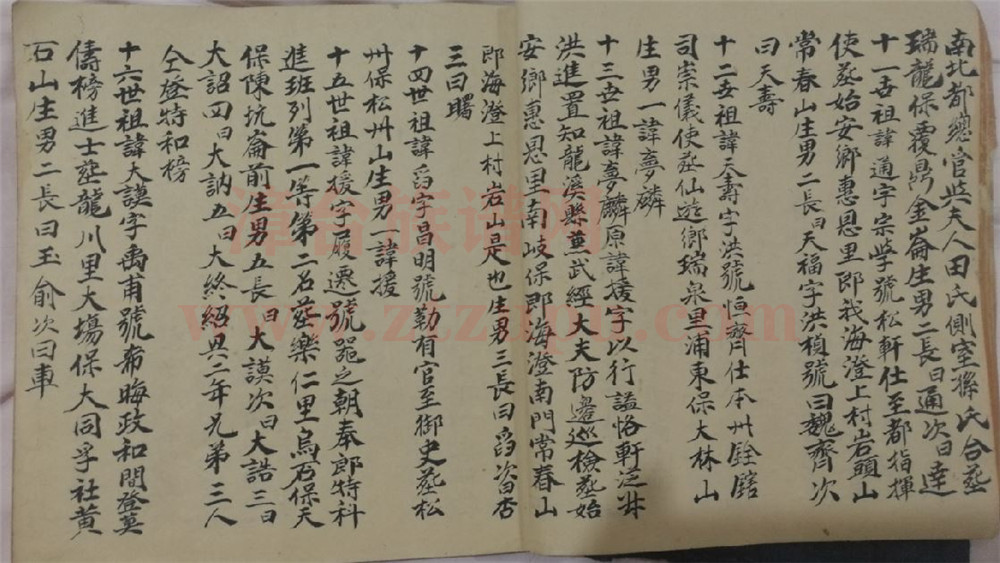 南北都總官共夫人田氏側室孫氏合葬
瑞龍保覆鼎金崙生男二長曰通次曰達
十一世祖諱通字宗學號松軒仕至都指揮
使葬始安鄉惠恩里郎我海澄上村岩頭山
常春山生男二長曰天福字洪楨號曰魏齊次
曰天壽
十二世祖諱天壽字洪號恒齊仕本州銓轄
司崇儀使葬仙遊鄉瑞泉里浦東保大林山
生男一諱夢麟
十三世祖諱夢麟原諱援字以行謚恪軒泛井
洪進置知龍溪縣兼武經大夫防邊巡檢葬始
安鄉惠恩里南岐保郎海澄南門常春山
郎海澄上村岩山是也生男三長曰爲次曰杏
三曰曙
十四世祖諱爲字昌明號勒有官至御史葬松
州保松州山生男一諱援
十五世祖諱援字履遷號器之朝奉郎特科
進班列第一等第二名葬樂仁里烏石保天
保陳坑崙前生男五長曰大謨次曰大誥三曰
大詔四曰大訥五曰大終紹興二年兄弟三人
仝登特和榜
十六世祖諱大謨字禹甫號希晦政和間登莫
儔榜進士葬龍川里大塲保大同孚社黃
石山生男二長曰玉俞次曰車
漳台族谱网
www.zzztpu.com